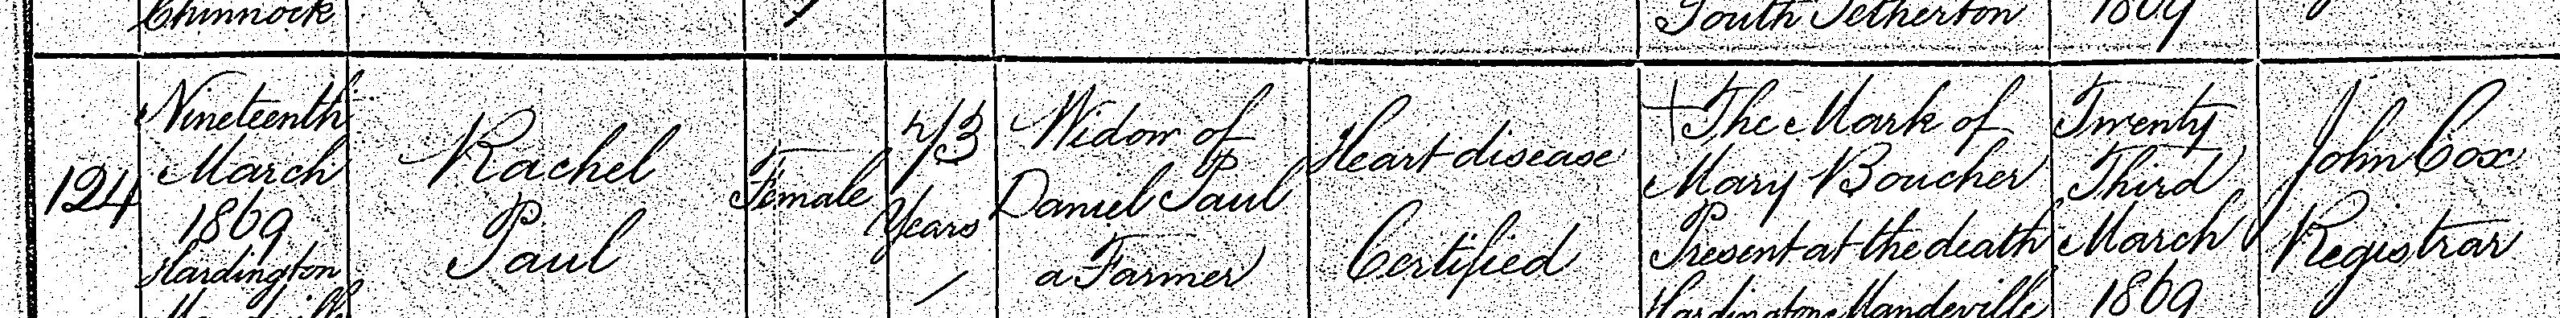 Chinnock
South Petherton
1869
124
Nineteenth
March
1869
Hardington
Mandeville
Rachel
Paul
Female
73
Years
Widow of
Daniel Paul
a Farmer
Heart disease
Certified
The Mark of
Mary Boucher
Present at the death
Hardington Mandeville
Twenty
Third
March
1869
John Cox
Registrar